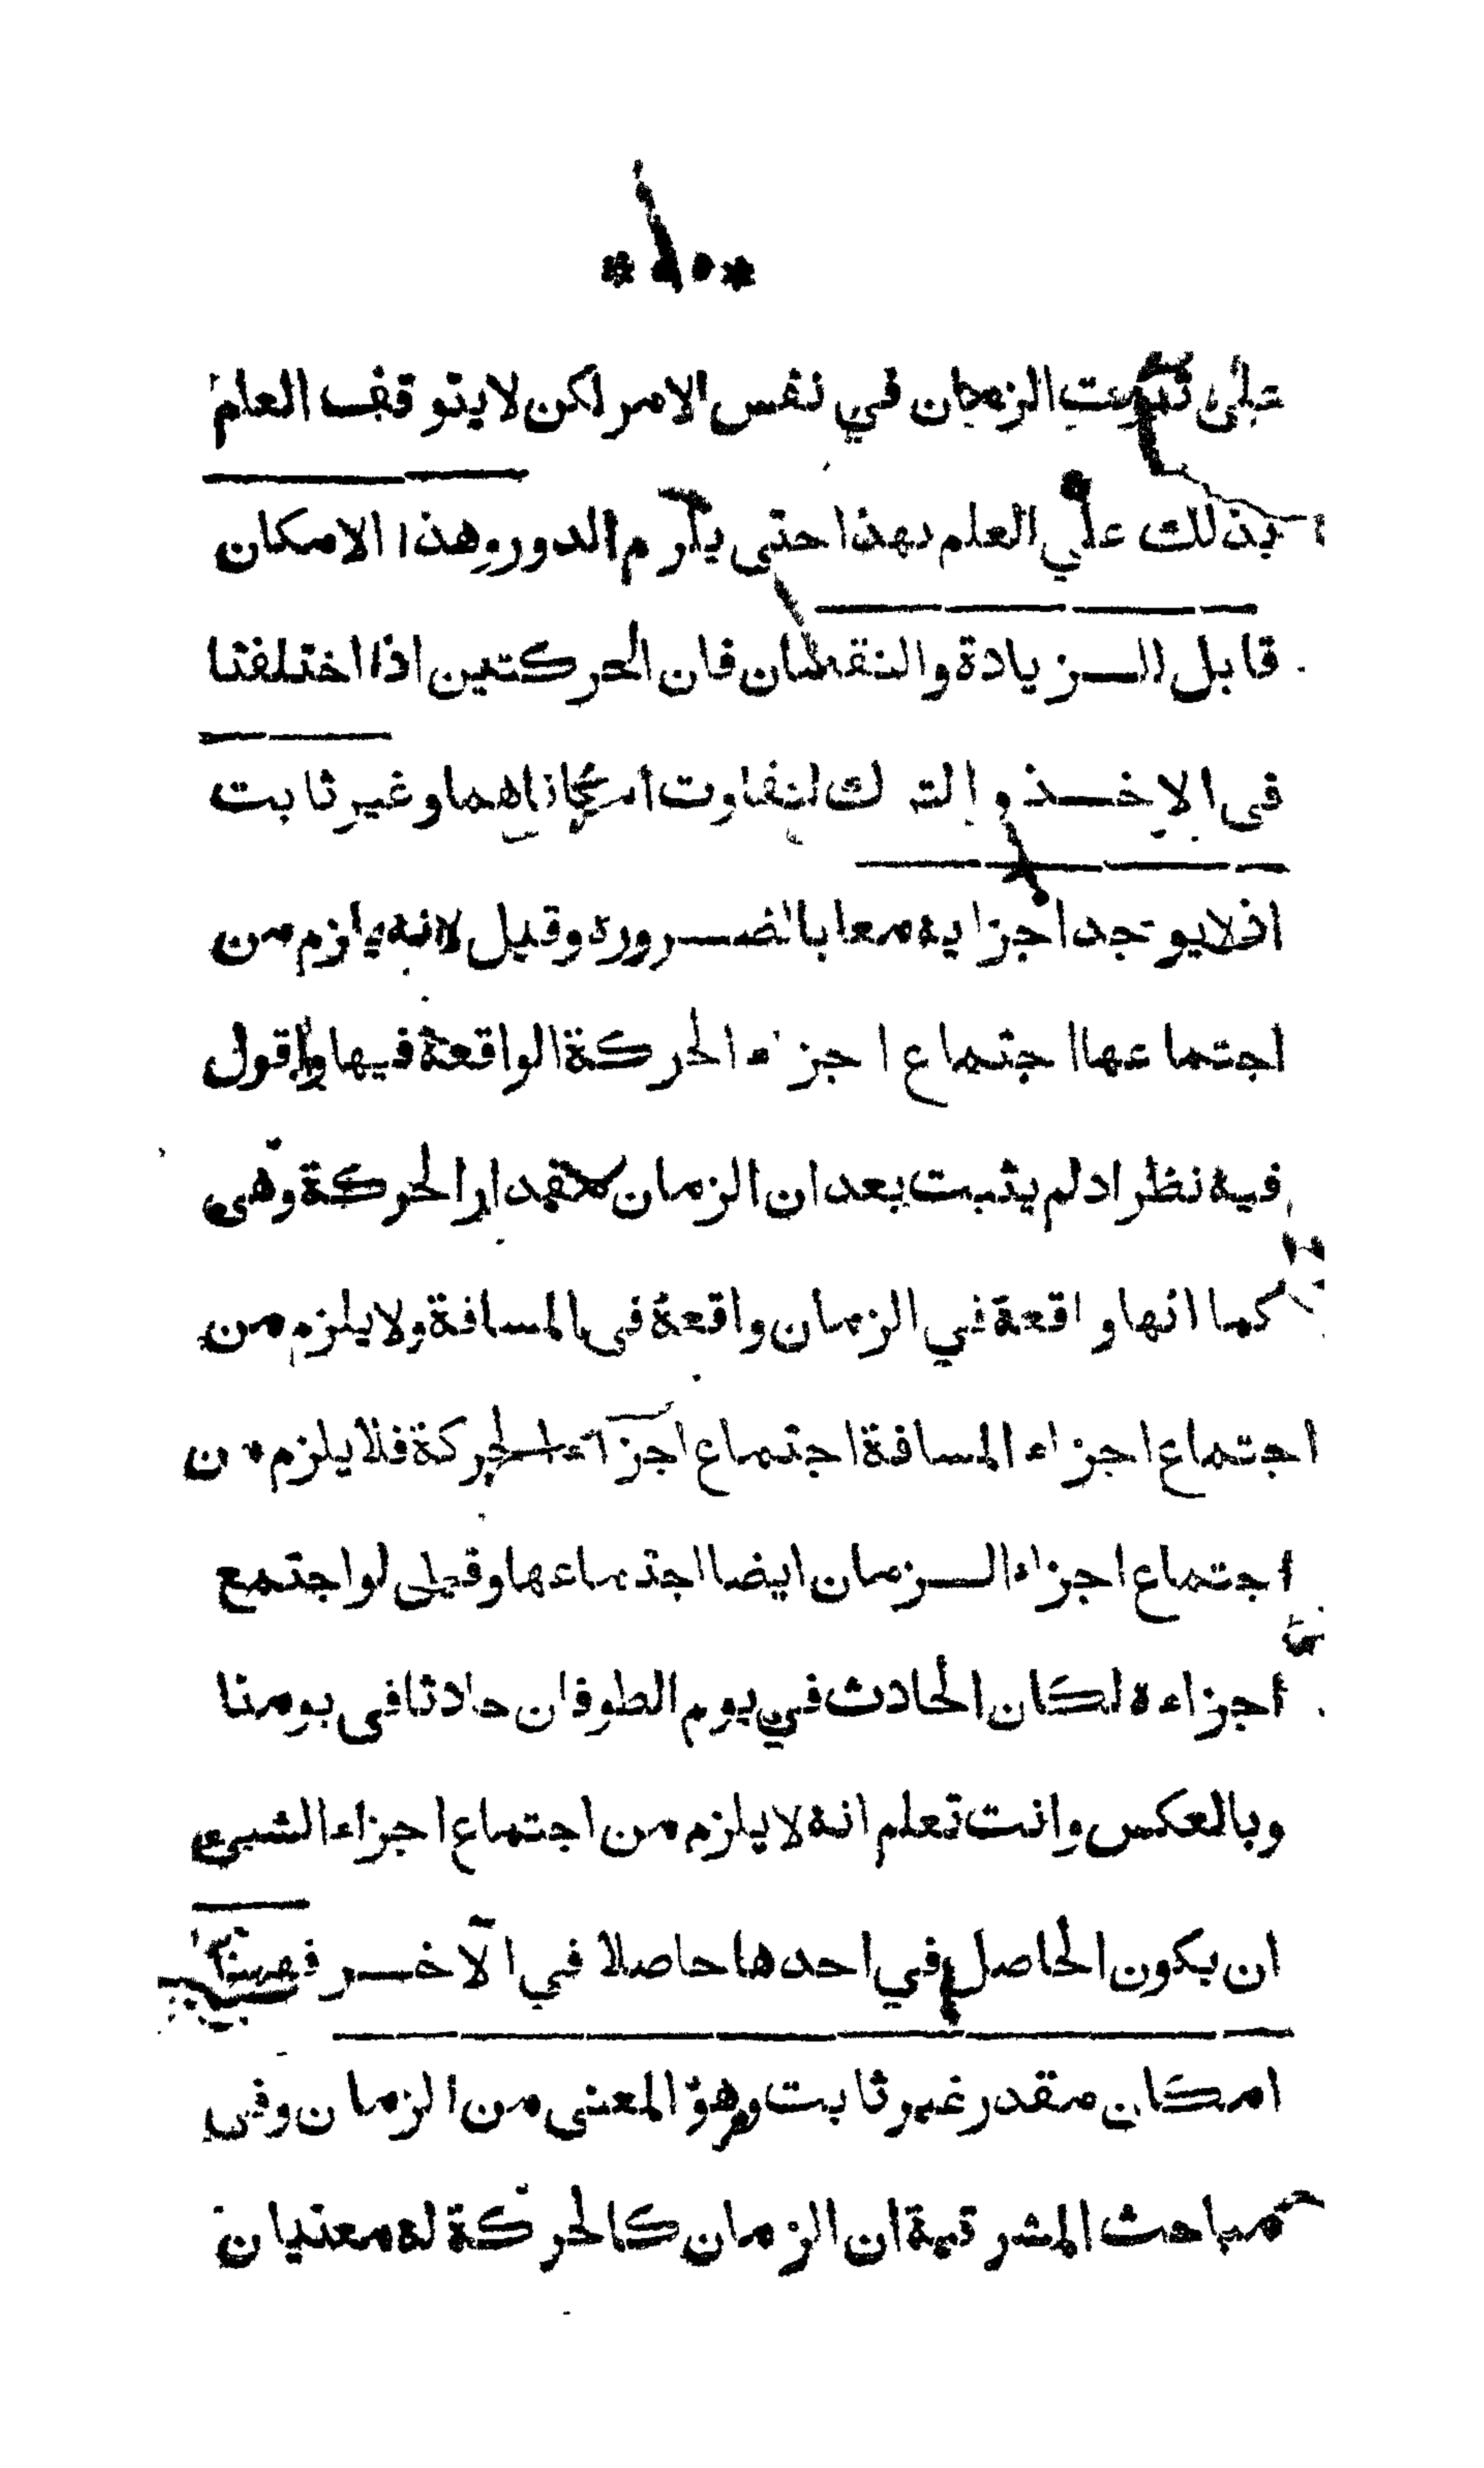 على ثبوت الزمان في نفس الامر لكن لا يتوقف العلم
بذلك علي العلم بهذا حتى يلزم الدور وهذا الامكان
قابل للزيادة والنقصان فان الحركتين اذا اختلفتا
فى الاخذ والترك لتفاوت امكاناهما وغير ثابت
اذ لا يوجد اجزايه معا بالضرورة وقيل لانه يلزم من
اجتماعها اجتماع اجزاء الحركة الواقعة فيها واقول
فيه نظر اد لم يثبت بعد ان الزمان مقدار الحركة وهى
كما انها واقعة في الزمان واقعة فى المسافة ولا يلزم من
اجتماع اجزاء المسافة اجتماع اجزاء الحركة فلا يلزم من
اجتماع اجزاء الزمان ايضا اجتماعها وقيل لو اجتمع
اجزاءه لكان الحادث في يوم الطوفان حادثا فى يومنا
وبالعكس وانت تعلم انه لا يلزم من اجتماع اجزاء الشيىء
ان يكون الحاصل في احدها حاصلا في الآخر فههنا
امكان مقدر غير ثابت وهو المعنى من الزمان وفى
مباحث المشرقية ان الزمان كالحركة له معنيان